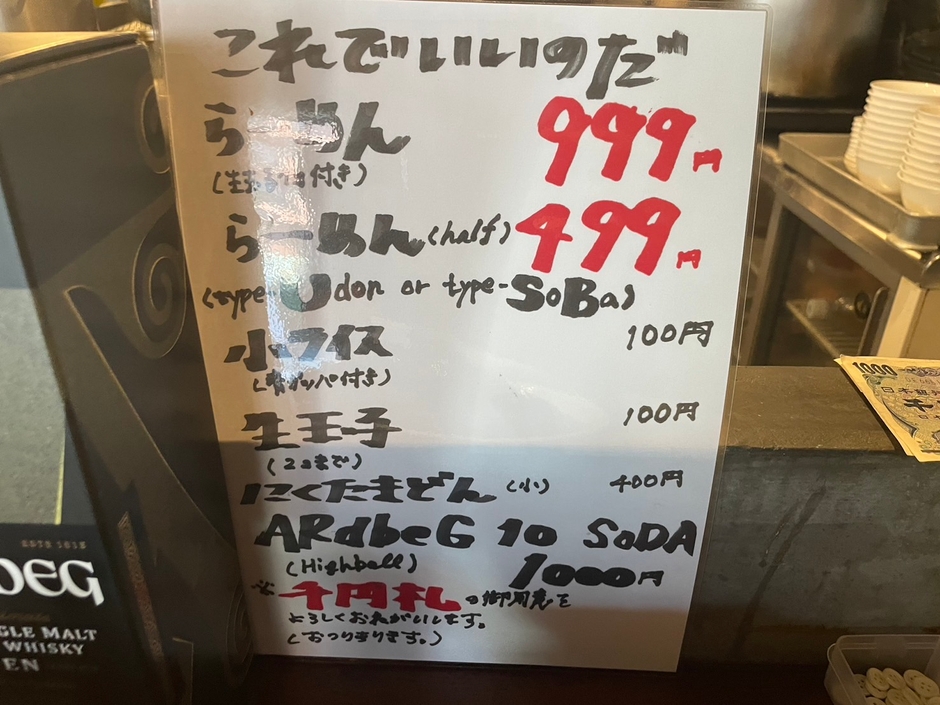 これでいいのだ
らーめん 999円
(生玉子1コ付き)
らーめん(half) 499円
(type-Udon or type-SoBa)
小ライス 100円
(青カッパ付き)
生玉子 100円
(2コまで)
にくたまどん(小) 400円
ARdbeG 10 SoDA
(Highball) 1000円
※千円札の御用意を
よろしくおねがいします。
(おつりあります。)
1000
日本銀
千
ESTD 1815
BEG
GLE MALT
WHISKY
EN